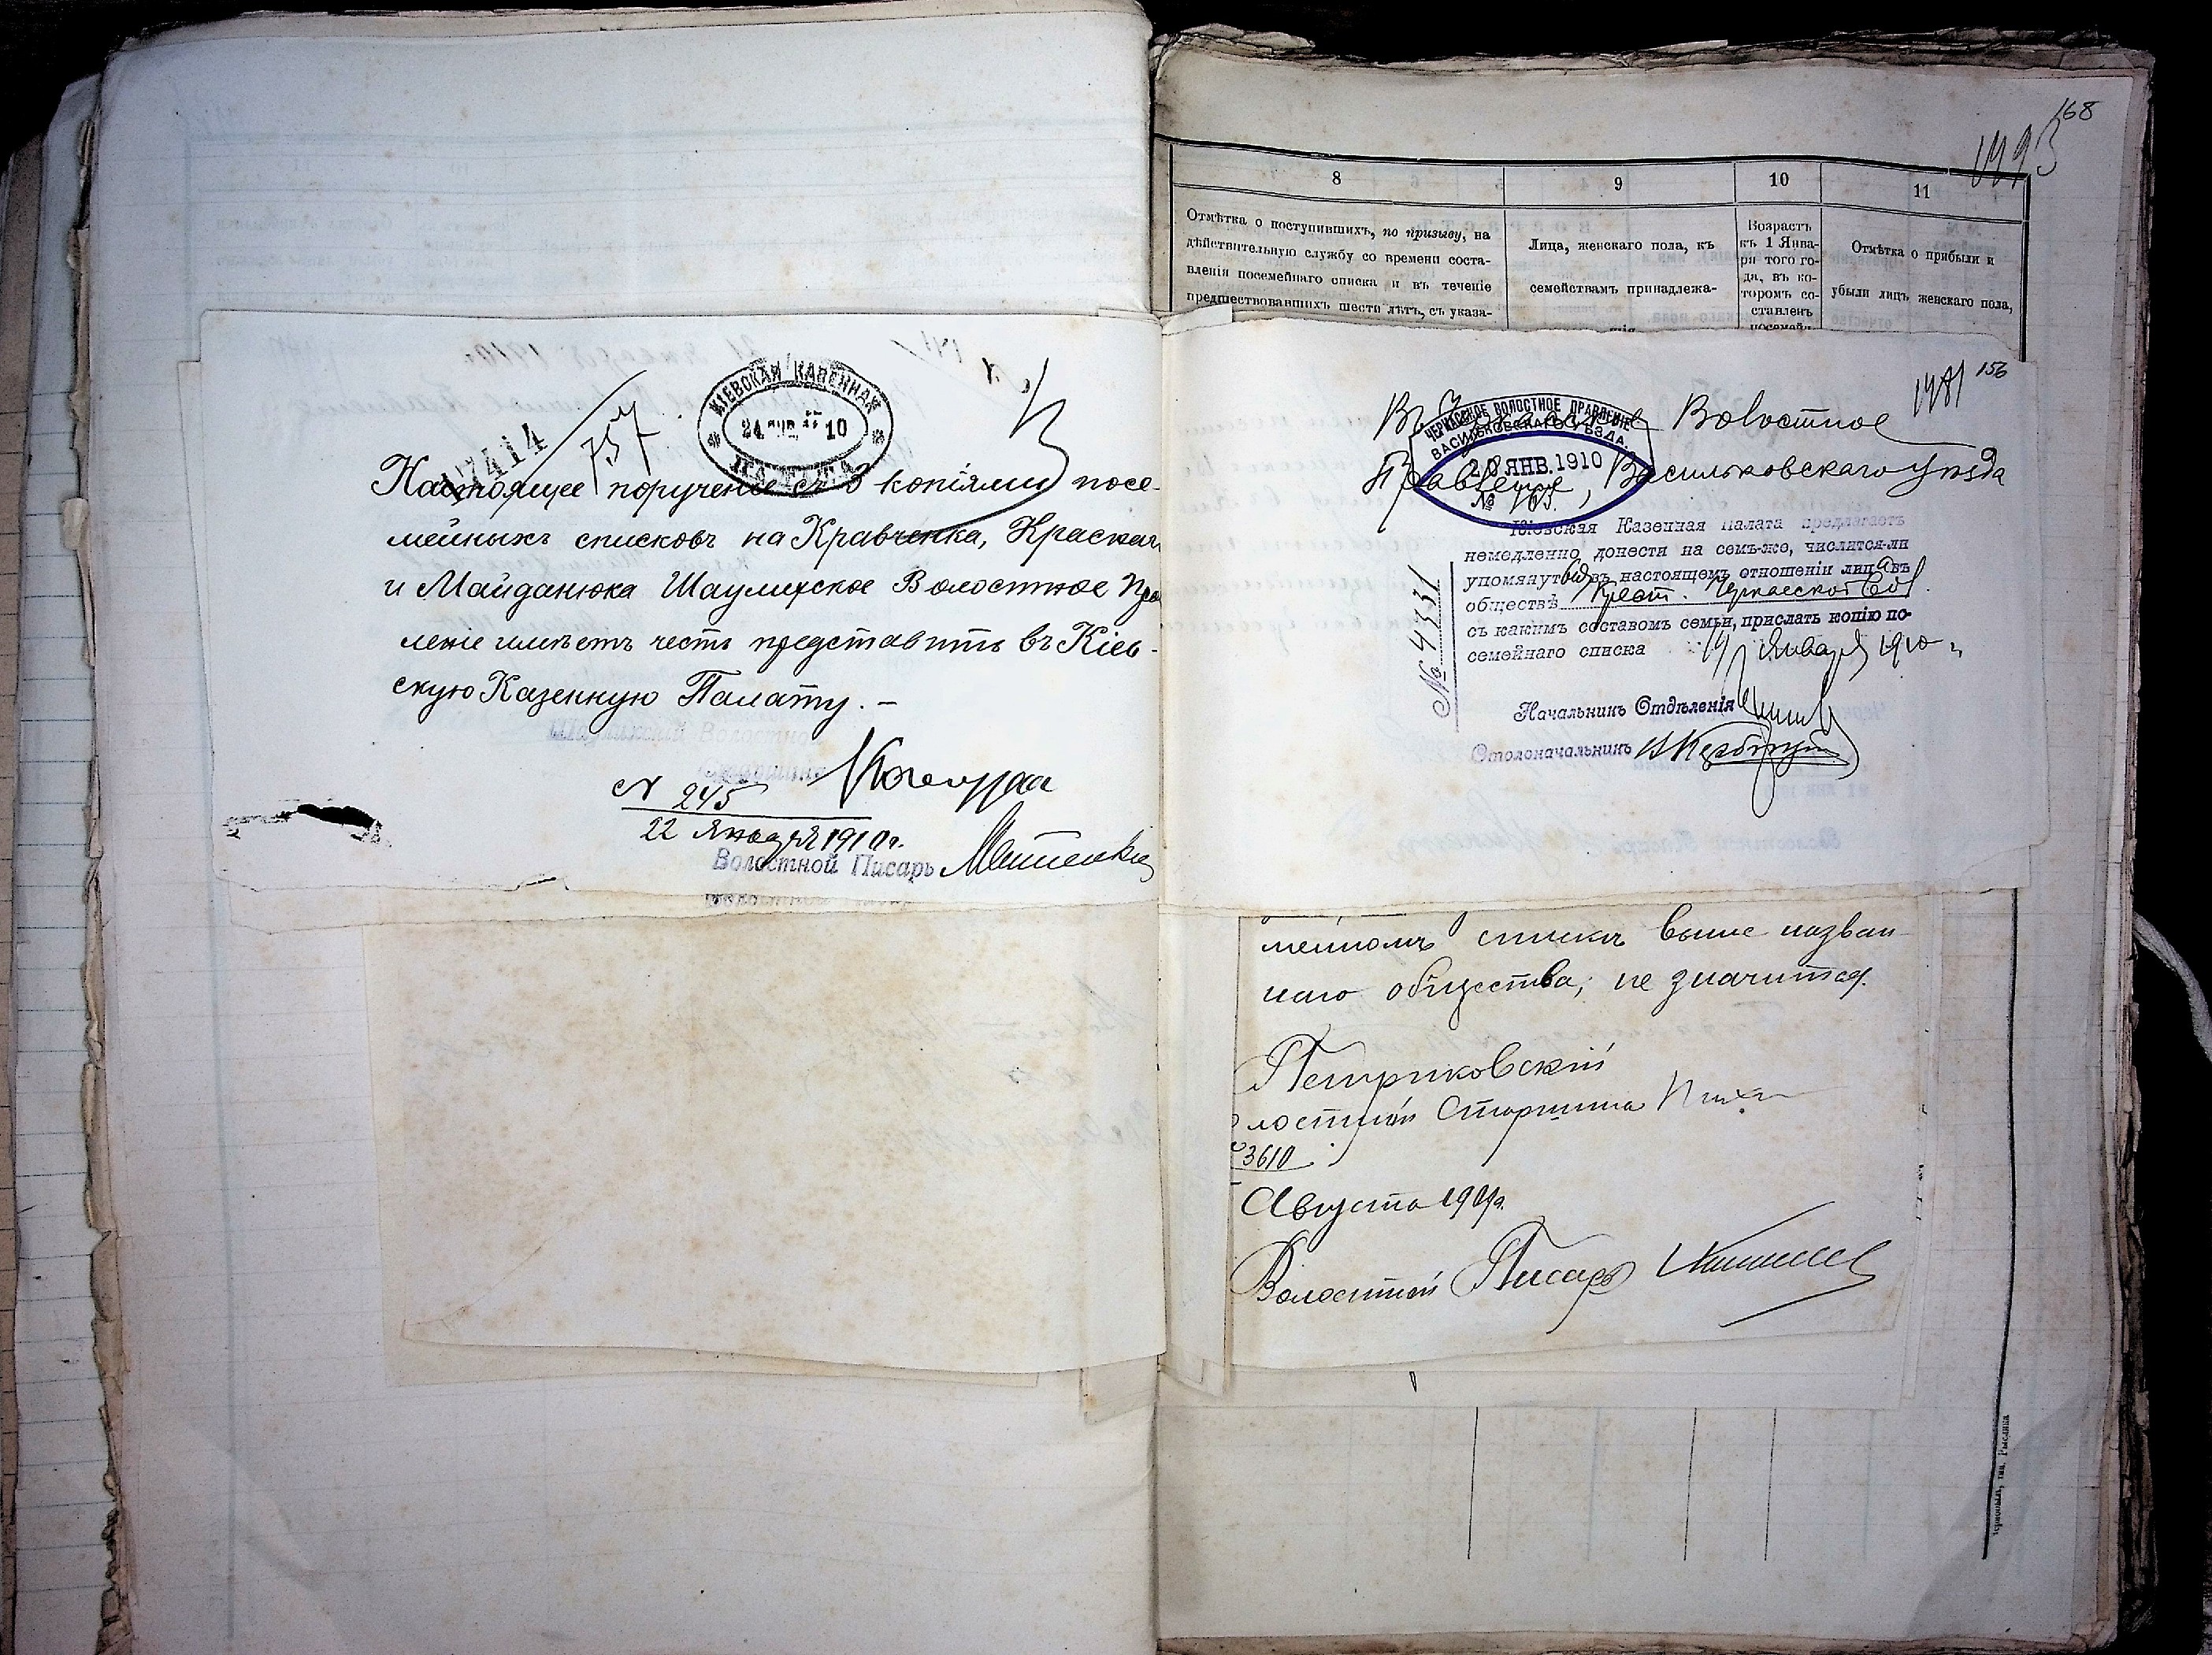 КІЕВСКАЯ КАЗЕННАЯ
24 ЯНВ 10
ПАЛАТА
17414
757
Настоящее порученіе съ 3 копіями посе-
мейныхъ списковъ на Кравченка,
и Майданюка Шаулихское Волостное Пра
леніе имѣетъ честь представить въ Кіев-
скую Казенную Палату. –
Шаулихскій Волостной
Старшина
N 245
22 Января 1910г.
Волостной Писарь
168
1493
8
9
10
11
Отмѣтка о поступившихъ, по призыву, на
дѣйствительную службу со времени соста-
вленія посемейнаго списка и въ теченіе
предшествовавшихъ шести лѣтъ, съ указа-
Лица, женскаго пола, къ
семействамъ принадлежа-
Возрастъ
къ 1 Янва-
ря того го-
да, въ ко-
торомъ со-
ставленъ
посемей-
Отмѣтка о прибыли и
убыли лицъ женскаго пола,
156
1481
Волостное
Правленіе, Васильковскаго уѣзда
ЧЕРКАССКОЕ ВОЛОСТНОЕ ПРАВЛЕНІЕ
ВАСИЛЬКОВСКАГО УѢЗДА.
20 ЯНВ. 1910
Кіевская Казенная Палата предлагаетъ
немедленно донести на семъ-же, числится-ли
упомянутый въ настоящемъ отношеніи лица въ
обществѣ Крест. Черкасской Вол.
съ какимъ составомъ семьи, прислать копію по-
семейнаго списка 19 Января 1910 г.
№ 4331
Начальникъ Отдѣленія
Столоначальникъ
мейномъ спискѣ выше назван-
наго общества, не значится.
Петриковскій
лостной Старшина
3610
Августа 1909г.
Волостной Писарь